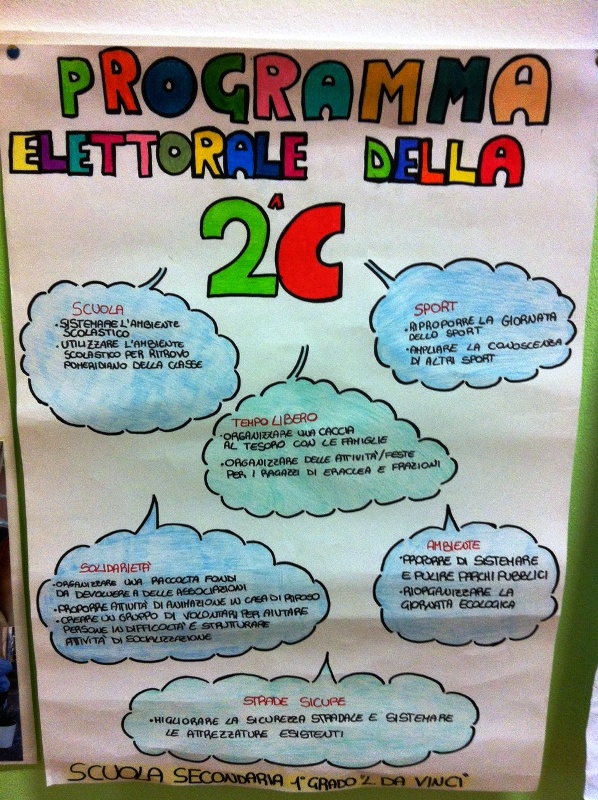 PROGRAMMA
ELETTORALE DELLA
2^C
SCUOLA
• SISTEMARE L'AMBIENTE
SCOLASTICO
• UTILIZZARE L'AMBIENTE
SCOLASTICO PER RITROVO
POMERIDIANO DELLA CLASSE
SPORT
• RIPROPORRE LA GIORNATA
DELLO SPORT
• AMPLIARE LA CONOSCENZA
DI ALTRI SPORT
TEMPO LIBERO
• ORGANIZZARE UNA CACCIA
AL TESORO CON LE FAMIGLIE
• ORGANIZZARE DELLE ATTIVITA'/FESTE
PER I RAGAZZI DI ERACLEA E FRAZIONI
SOLIDARIETA'
• ORGANIZZARE UNA RACCOLTA FONDI
DA DEVOLVERE A DELLE ASSOCIAZIONI
• PROPORRE ATTIVITA' DI ANIMAZIONE IN CASA DI RIPOSO
• CREARE UN GRUPPO DI VOLONTARI PER AIUTARE
PERSONE IN DIFFICOLTA' E STRUTTURARE
ATTIVITA' DI SOCIALIZZAZIONE
AMBIENTE
• PROPORRE DI SISTEMARE
E PULIRE PARCHI PUBBLICI
• RIORGANIZZARE LA
GIORNATA ECOLOGICA
STRADE SICURE
• MIGLIORARE LA SICUREZZA STRADALE E SISTEMARE
LE ATTREZZATURE ESISTENTI
SCUOLA SECONDARIA 1° GRADO "L. DA VINCI"